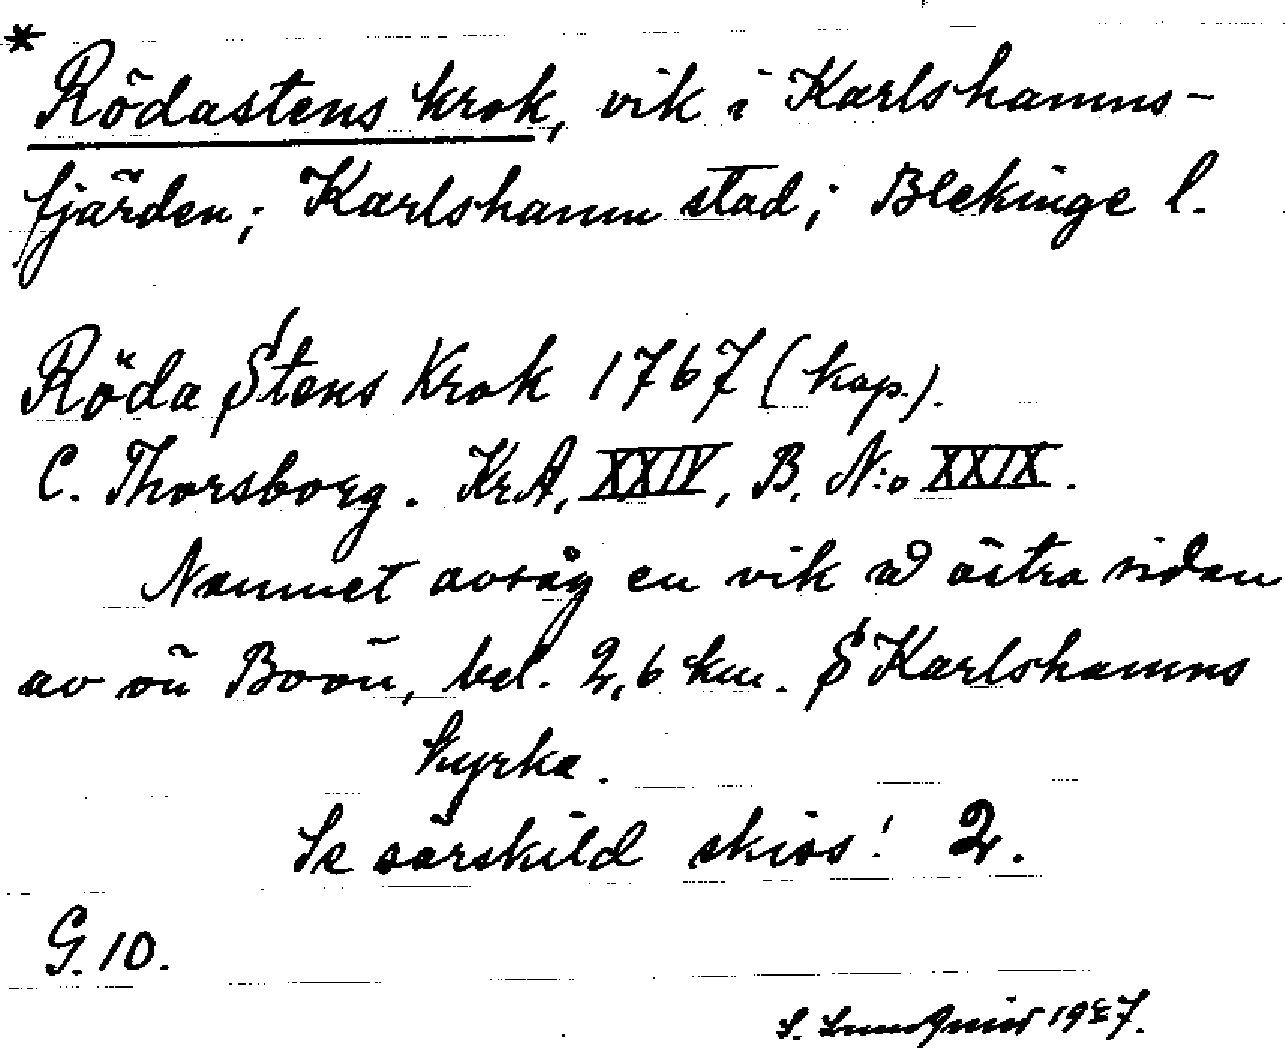 *
Rödastens krok, vik i Karlshamns-
fjärden; Karlshamn stad; Blekinge l.
Röda Stens Krok 1767 (kop.).
C. Thorsborg. KrA, XXIV, B. N:o XXIX.
Namnet avsåg en vik å östra sidan
av ön Boön, bel. 2,6 km. S Karlshamns
kyrka.
Se särskild skiss! 2.
G. 10.
S. 1927.